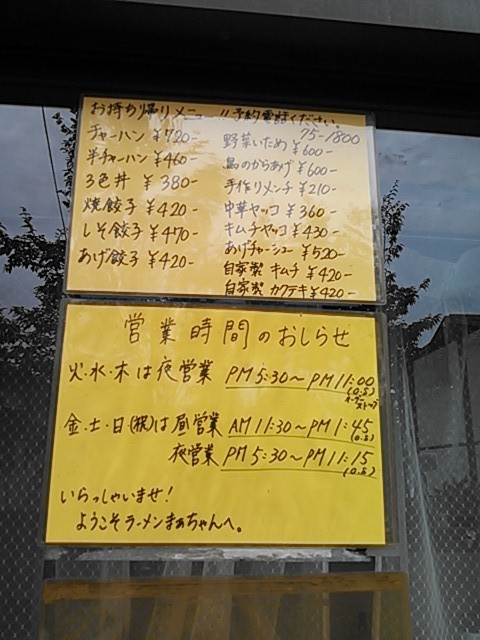 お持ち帰りメニュー 〃予約電話ください。
75-1800
チャーハン ¥720-
半チャーハン ¥460-
3色丼 ¥380-
焼餃子 ¥420-
しそ餃子 ¥470-
あげ餃子 ¥420-
野菜いため ¥600-
鳥のからあげ ¥600-
手作りメンチ ¥210-
中華ヤッコ ¥360-
キムチヤッコ ¥430-
あげチャーシュー ¥520-
自家製 キムチ ¥420-
自家製 カクテキ ¥420-
営業時間のおしらせ
火・水・木は夜営業 PM5:30〜PM11:00
(o.s)
オーダーストップ
金・土・日(祝)は昼営業 AM11:30〜PM1:45
(o.s)
夜営業 PM5:30〜PM11:15
(o.s)
いらっしゃいませ!
ようこそラーメンまあちゃんへ。